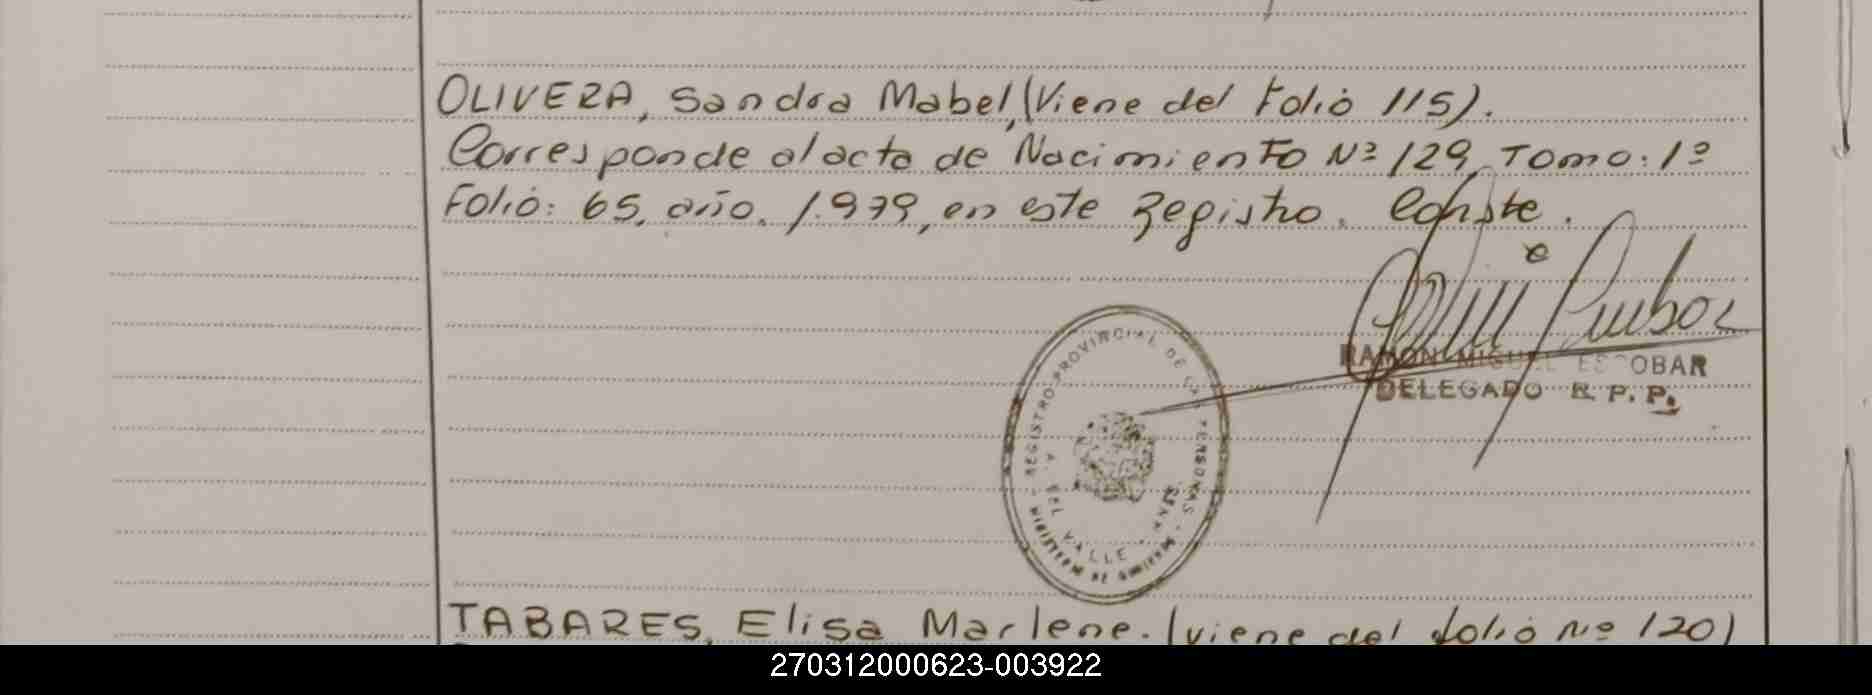 OLIVERA, Sandra Mabel, (Viene del Folio 115).
Corresponde al acta de Nacimiento Nº 129, Tomo: 1º
Folio: 65, año. 1.979, en este Registro. Conste.
RAMON MIGUEL ESCOBAR
DELEGADO R. P. P.
REGISTRO PROVINCIAL DE LAS PERSONAS
MINISTERIO DE GOBIERNO
DEL VALLE
TABARES, Elisa Marlene. (viene del folio Nº 120)
270312000623-003922